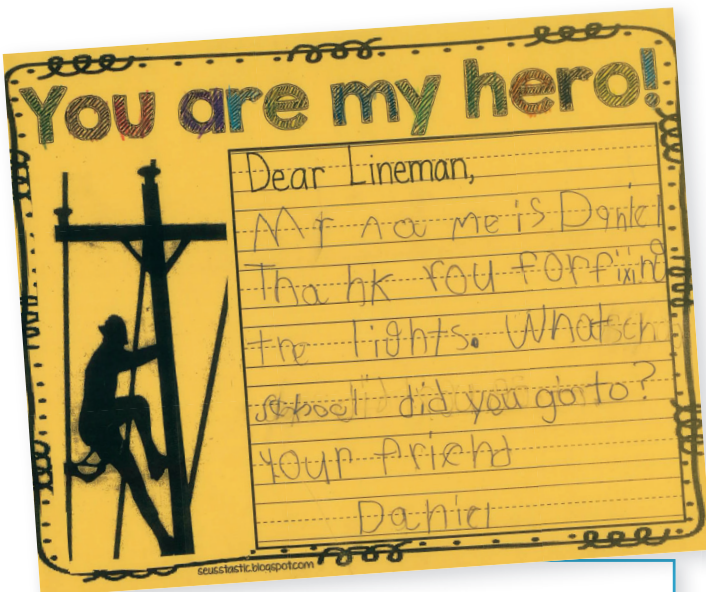 You are my hero!
Dear Lineman,
My name is Daniel
Thank You for fixing
the lights. What
school did you go to?
Your friend
Daniel
seusstastic.blogspot.com